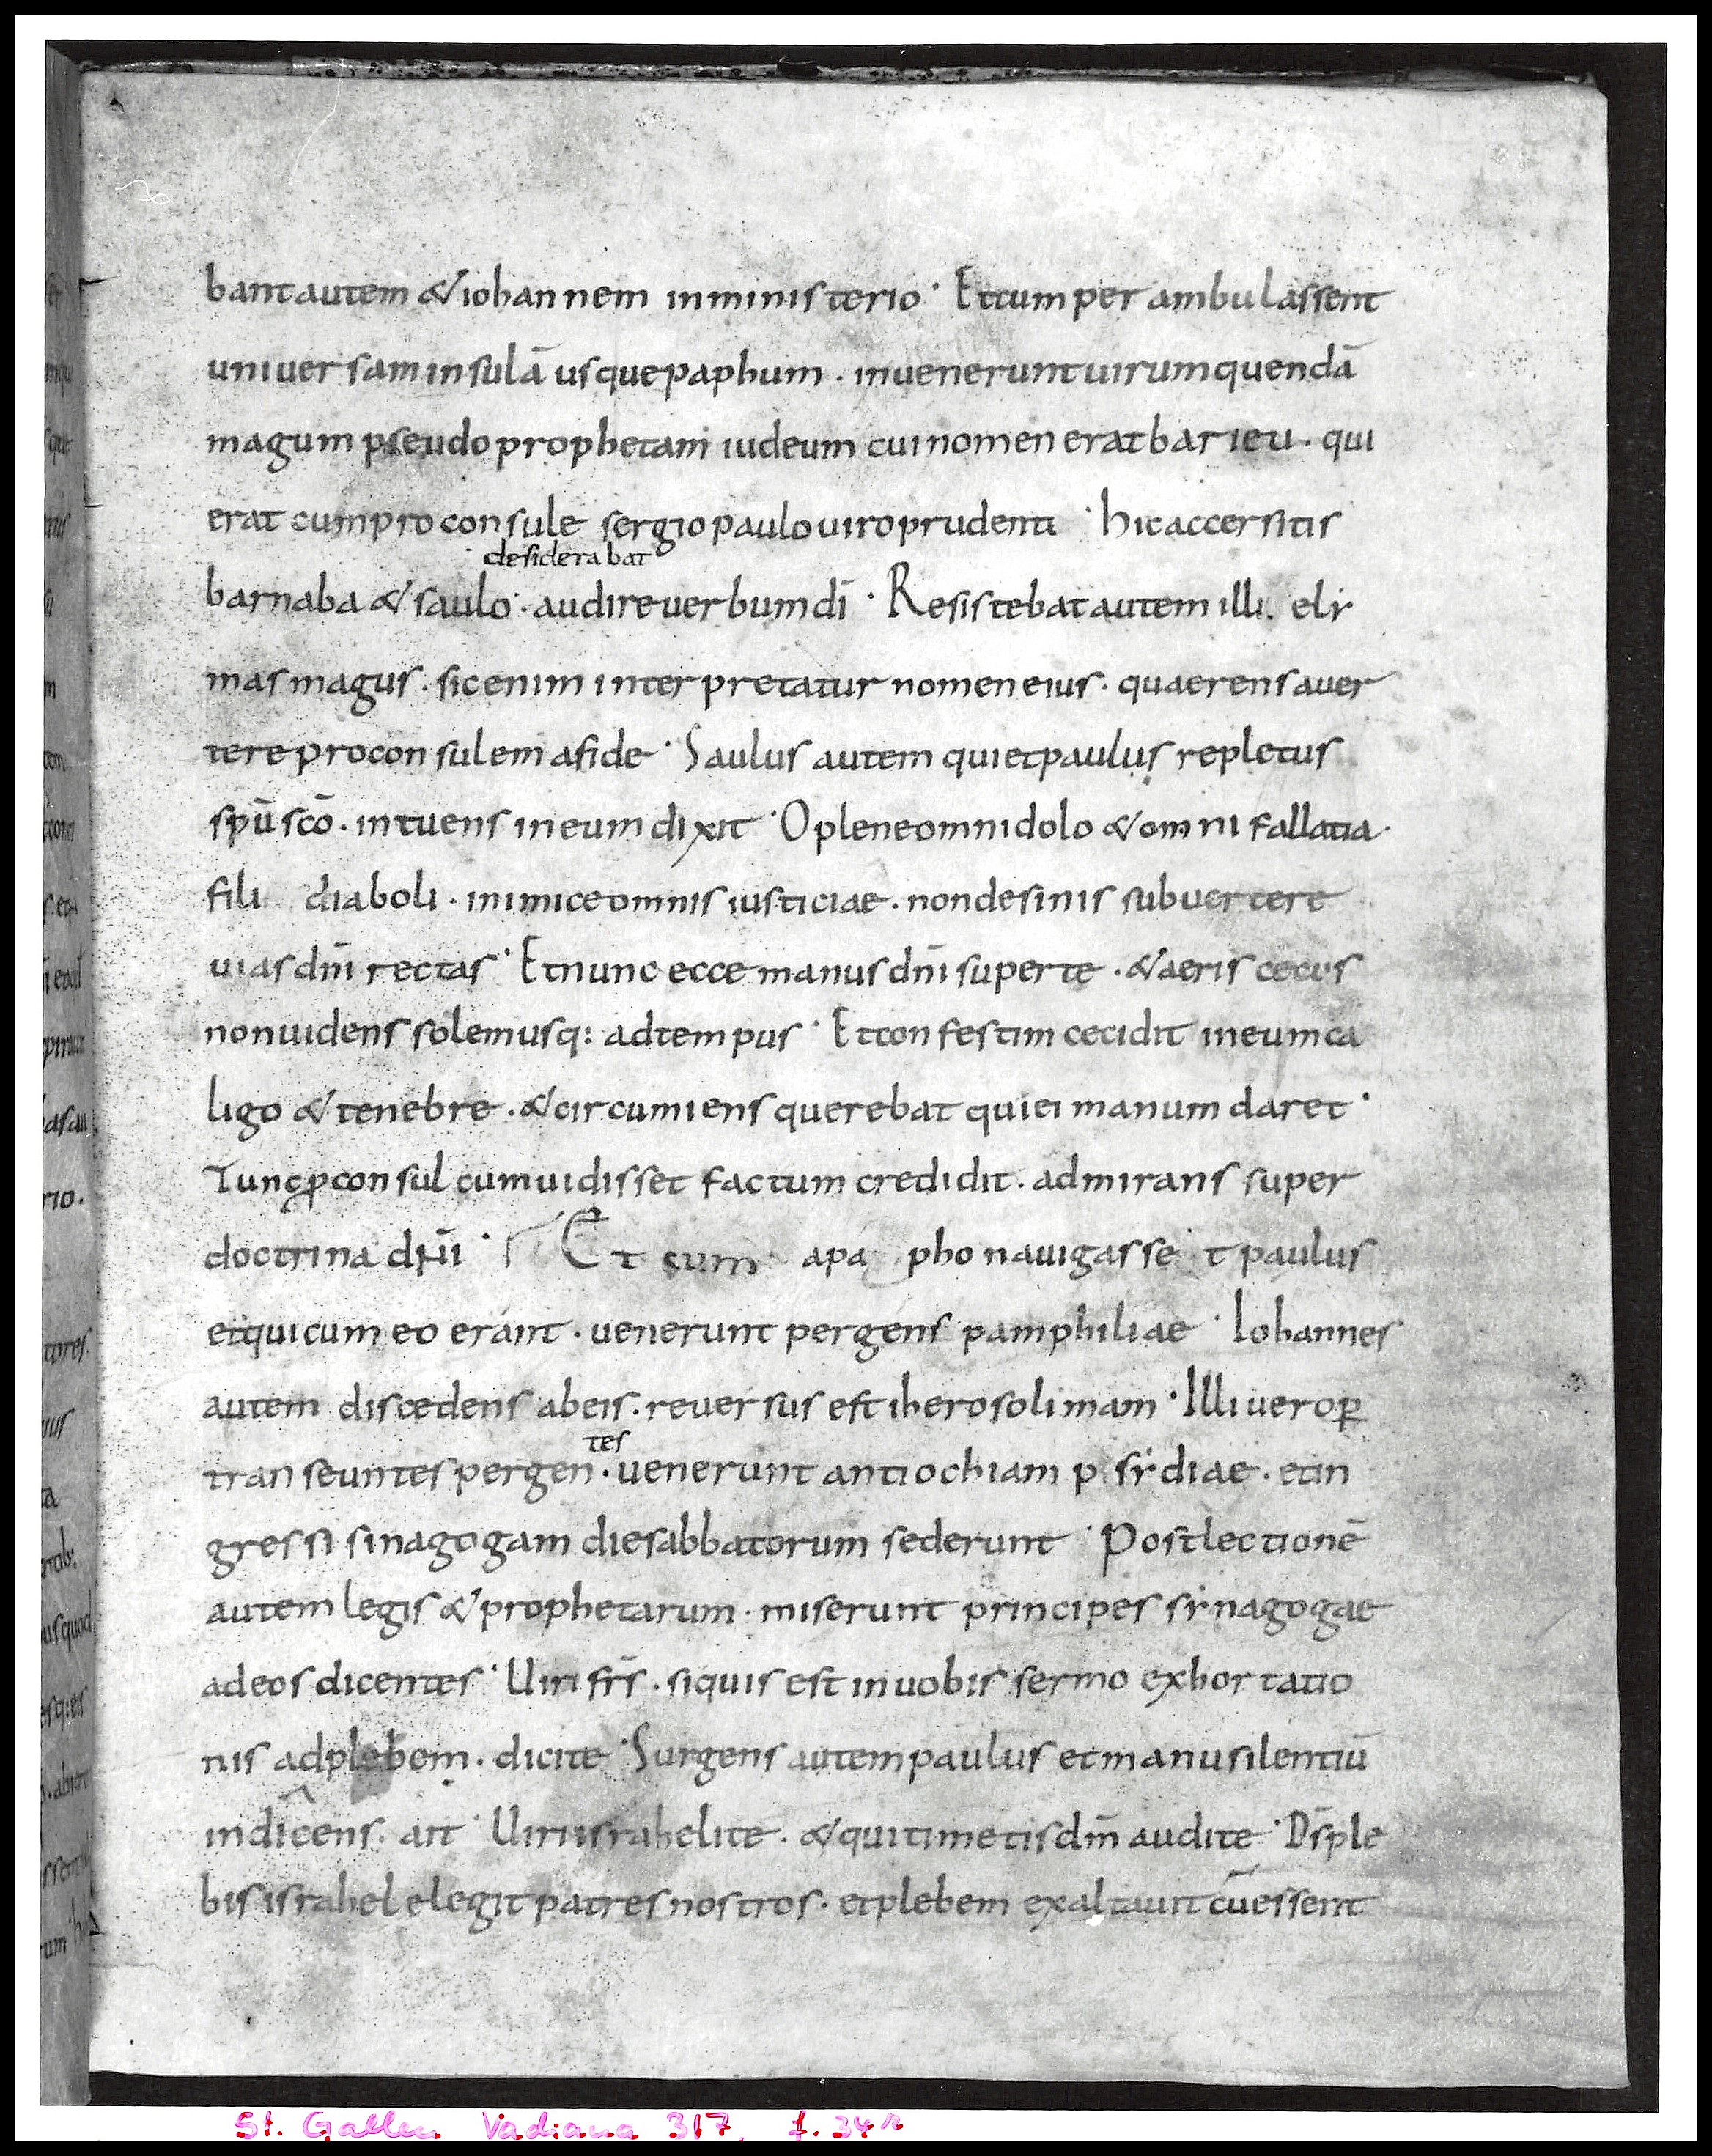 bant autem & iohannem in ministerio · Et cum perambulassent
uniuersam insulā usque paphum · inuenerunt uirum quendā
magum pseudoprophetam iudeum cui nomen erat barieu · qui
erat cum proconsule sergio paulo uiro prudenti · hic accersitis
desiderabat
barnaba & saulo · audire uerbum dī · Resistebat autem illi. ely
mas magus · sic enim interpretatur nomen eius · quaerens auer
tere proconsulem a fide · Saulus autem qui et paulus repletus
spū scō · intuens in eum dixit · O plene omni dolo & omni fallatia ·
fili diaboli · inimice omnis iusticiae · non desinis subuertere
uias dn̄i rectas · Et nunc ecce manus dn̄i super te · & aeris cecus
non uidens solem usq: ad tempus · Et confestim cecidit in eum ca
ligo & tenebre · & circumiens querebat qui ei manum daret ·
Tunc ꝓconsul cum uidisset factum credidit · admirans super
doctrina dn̄i · Et cum a papho nauigasset paulus
et qui cum eo erant · uenerunt pergens pamphiliae · Iohannes
autem discedens ab eis · reuersus est iherosolimam · Illi uero ꝑ
tes
transeuntes pergen · uenerunt antiochiam p sydiae · et in
gressi sinagogam die sabbatorum sederunt · Post lectionē
autem legis & prophetarum · miserunt principes synagogae
ad eos dicentes · Uiri frs̄ · si quis est in uobis sermo exhortatio
nis ad plebem · dicite · Surgens autem paulus et manu silentiū
indicens · ait · Uiri israhelite · & qui timetis dm̄ audite · Ds̄ ple
bis israhel elegit patres nostros · et plebem exaltauit cū essent
St. Gallen Vadiana 317, f. 34r